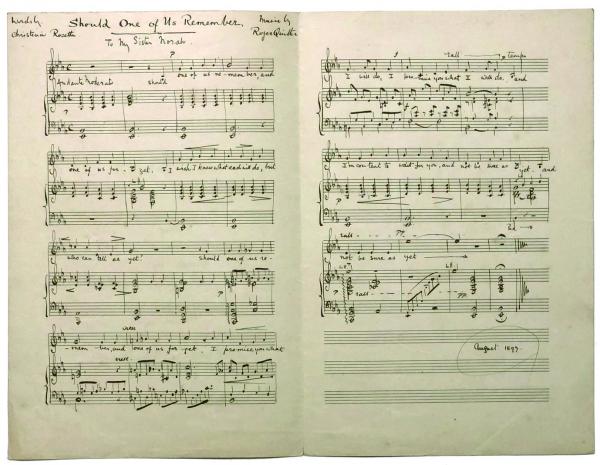 Words by
Christina Rossetti
Should One of Us Remember,
To My Sister Norah.
Music by
Roger Quilter
p
Andante Moderato
Should one of us re-mem-ber, and
one of us for-get, I wish I knew what each will do, but
who can tell as yet? Should one of us re-
cresc
-mem-ber, and one of us for-get, I promise you what
cresc.
f rall tempo
I will do, I pro-mise you what I will do, And
I'm content to wait for you, and not be sure as yet, and
rall - - - pp
not be sure as yet
rall - - - pp.
August 1897.